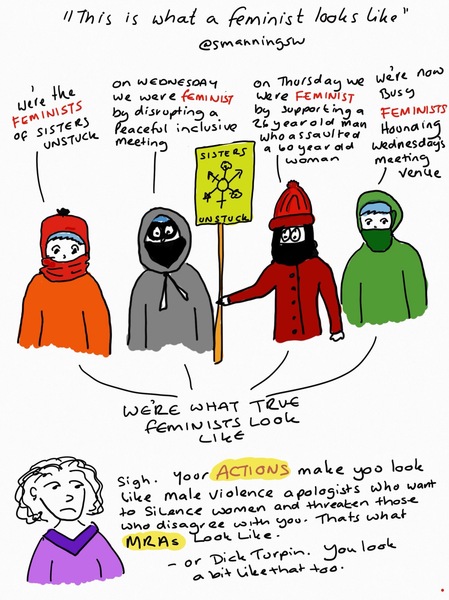 "This is what a feminist looks like"
@smanningsw
We're the
FEMINISTS
OF SISTERS
UNSTUCK
on WEDNESDAY
we were FEMINIST
by disrupting a
Peaceful inclusive
meeting
on Thursday we
were FEMINIST
by supporting a
26 year old man
who assaulted
a 60 year old
woman
We're now
Busy
FEMINISTS
Hounding
Wednesday's
meeting
venue
SISTERS
UNSTUCK
WE'RE WHAT TRUE
FEMINISTS LOOK
LIKE
Sigh. Your ACTIONS make you look
like male violence apologists who want
to silence women and threaten those
who disagree with you. Thats what
MRAs Look Like.
- or Dick Turpin. You look
a bit like that too.